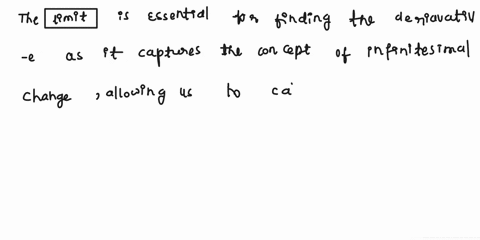 The limit is essential for finding the deriavativ
-e as it captures the concept of infinitesimal
change , allowing us to ca